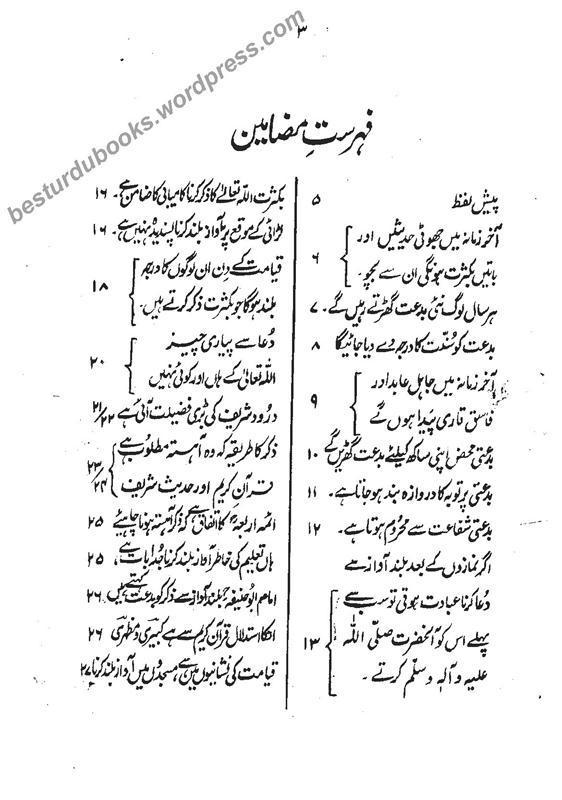 ۳
besturdubooks.wordpress.com
فہرستِ مضامین
پیش لفظ ۵
آخر زمانہ میں جھوٹی حدیثیں اور
باتیں بکثرت ہونگی ان سے بچو ۶
ہر سال لوگ نئی بدعت گھڑتے رہیں گے۔ ۷
بدعت کو سُنّت کا درجہ دے دیا جائیگا ۸
آخر زمانہ میں جاہل عابد اور
فاسق قاری پَیدا ہوں گے ۹
بدعتی محض اپنی ساکھ کیلئے بدعت گھڑیں گے ۱۰
بدعتی پر توبہ کا دروازہ بند ہوجاتا ہے۔ ۱۱
بدعتی شفاعت سے محرُوم ہوتا ہے۔ ۱۲
اگر نمازوں کے بعد بلند آواز سے
دُعا کرنا عبادت ہوتی تو سب سے
پہلے اس کو آنحضرت صلّی اللہ ۱۳
علیہ و آلہٖ وسلّم کرتے۔
بکثرت اللہ تعالٰے کا ذکر کرنا کامیابی کا ضامن ہے۔ ۱۶
لڑائی کے موقع پر بآواز بلند کرنا پسندیدہ نہیں ہے۔ ۱۶
قیامت کے دن ان لوگوں کا درجہ
بلند ہوگا جو بکثرت ذکر کرتے ہیں۔ ۱۸
دُعا سے پیاری چیز
اللہ تعالٰی کے ہاں اور کوئی نہیں ۲۰
درود شریف کی بڑی فضیلت آئی ہے ۲۱/۲۲
ذکر کا طریقہ کہ وہ آہستہ مطلوب ہے
قرآن کریم اور حدیث شریف ۲۳/۲۴
ائمہ اربعہؒ کا اتفاق ہے کہ ذکر آہستہ ہونا چاہیئے ۲۵
ہاں تعلیم کی خاطر آواز بلند کرنا جُدا بات ہے، ۲۵
امام ابوحنیفہؒ بلند آواز سے ذکر کو بدعت کہتے ہیں ۲۶
انکا استدلال قرآن کریم سے ہے کبیری و مظہری ۲۶
قیامت کی نشانیوں میں سے مسجدوں میں آواز بلند کرنا ۲۷